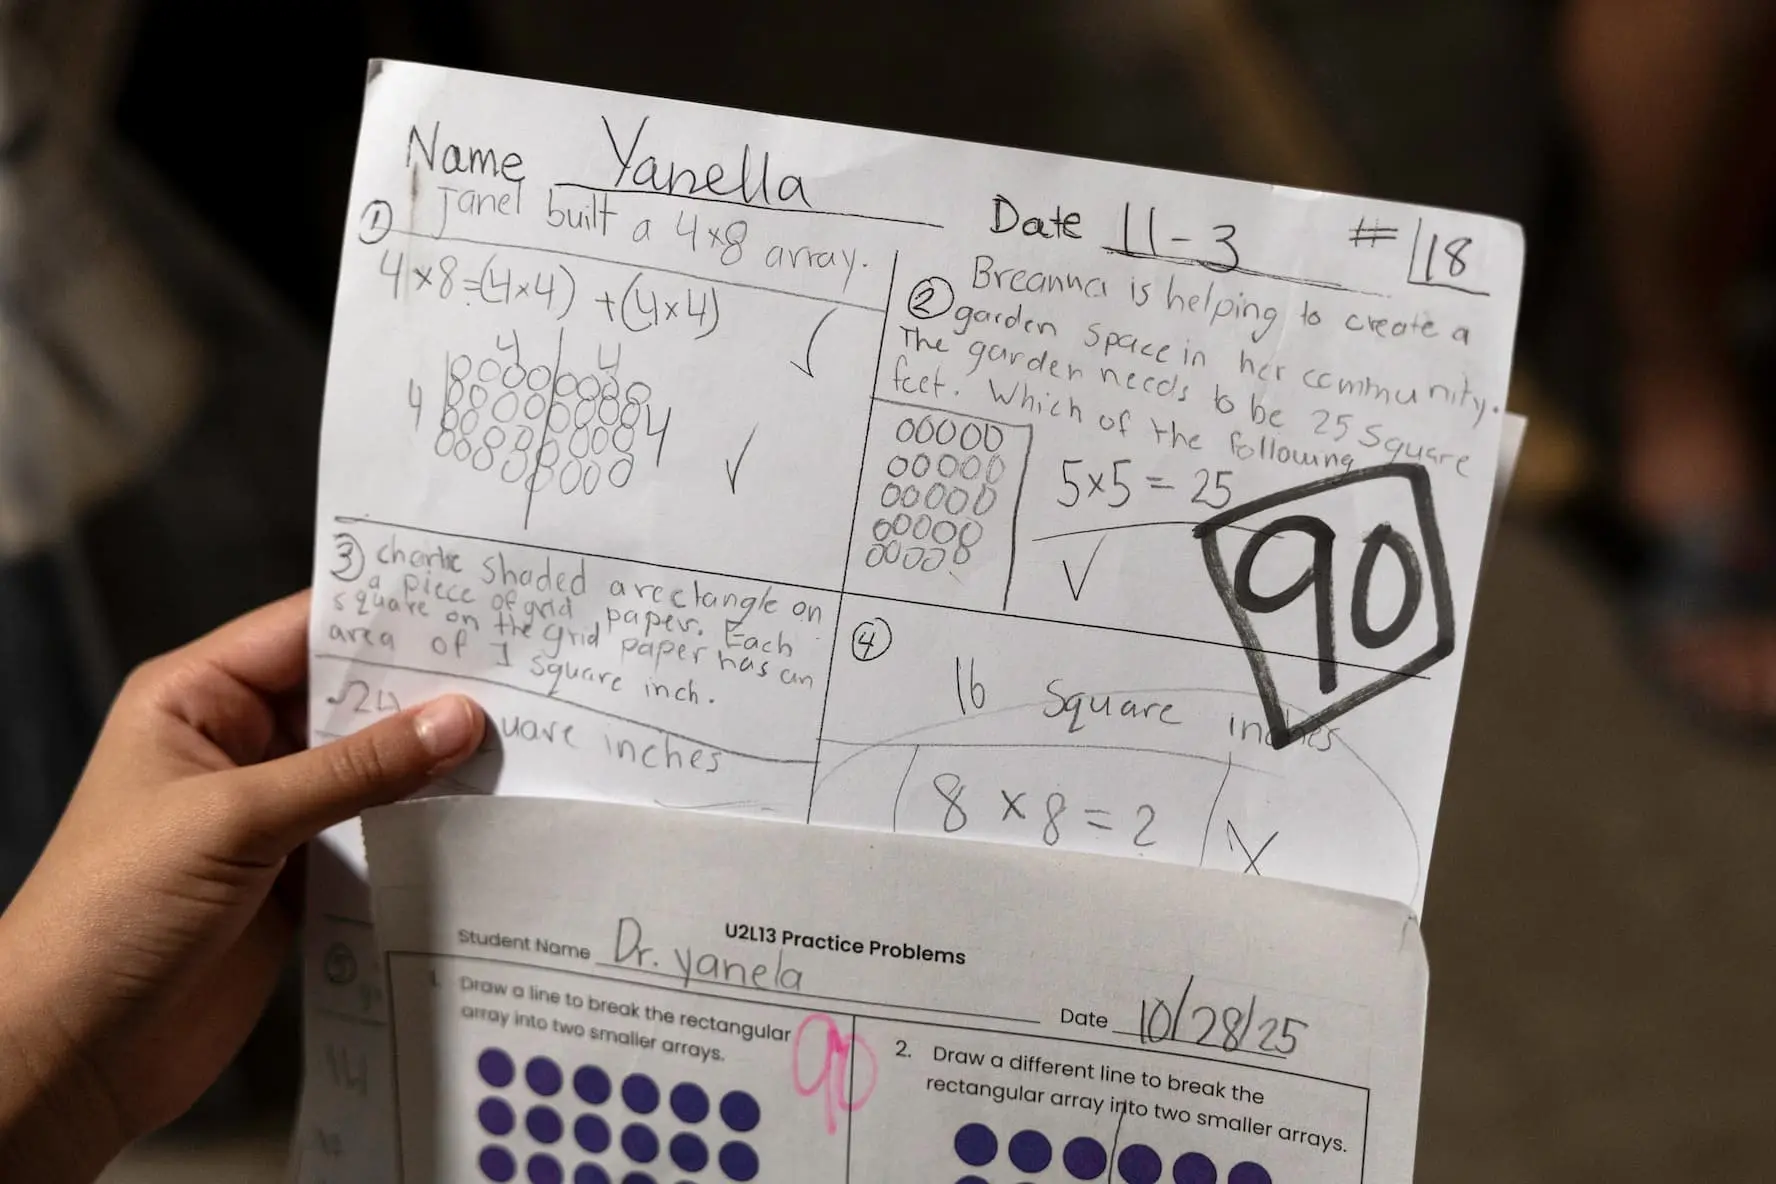 Name Yanella
Date 11-3 # 18
① Janel built a 4x8 array.
4x8=(4x4)+(4x4)
4 4
4 4
② Breanna is helping to create a
garden space in her community.
The garden needs to be 25 Square
feet. Which of the following
5x5=25
90
③ charlie shaded a rectangle on
a piece of grid paper. Each
square on the grid paper has an
area of 1 square inch.
24 uare inches
④
16 Square inches
8x8=?
U2L13 Practice Problems
Student Name Dr. yanela
Date 10/28/25
1. Draw a line to break the rectangular
array into two smaller arrays.
90
2. Draw a different line to break the
rectangular array into two smaller arrays.